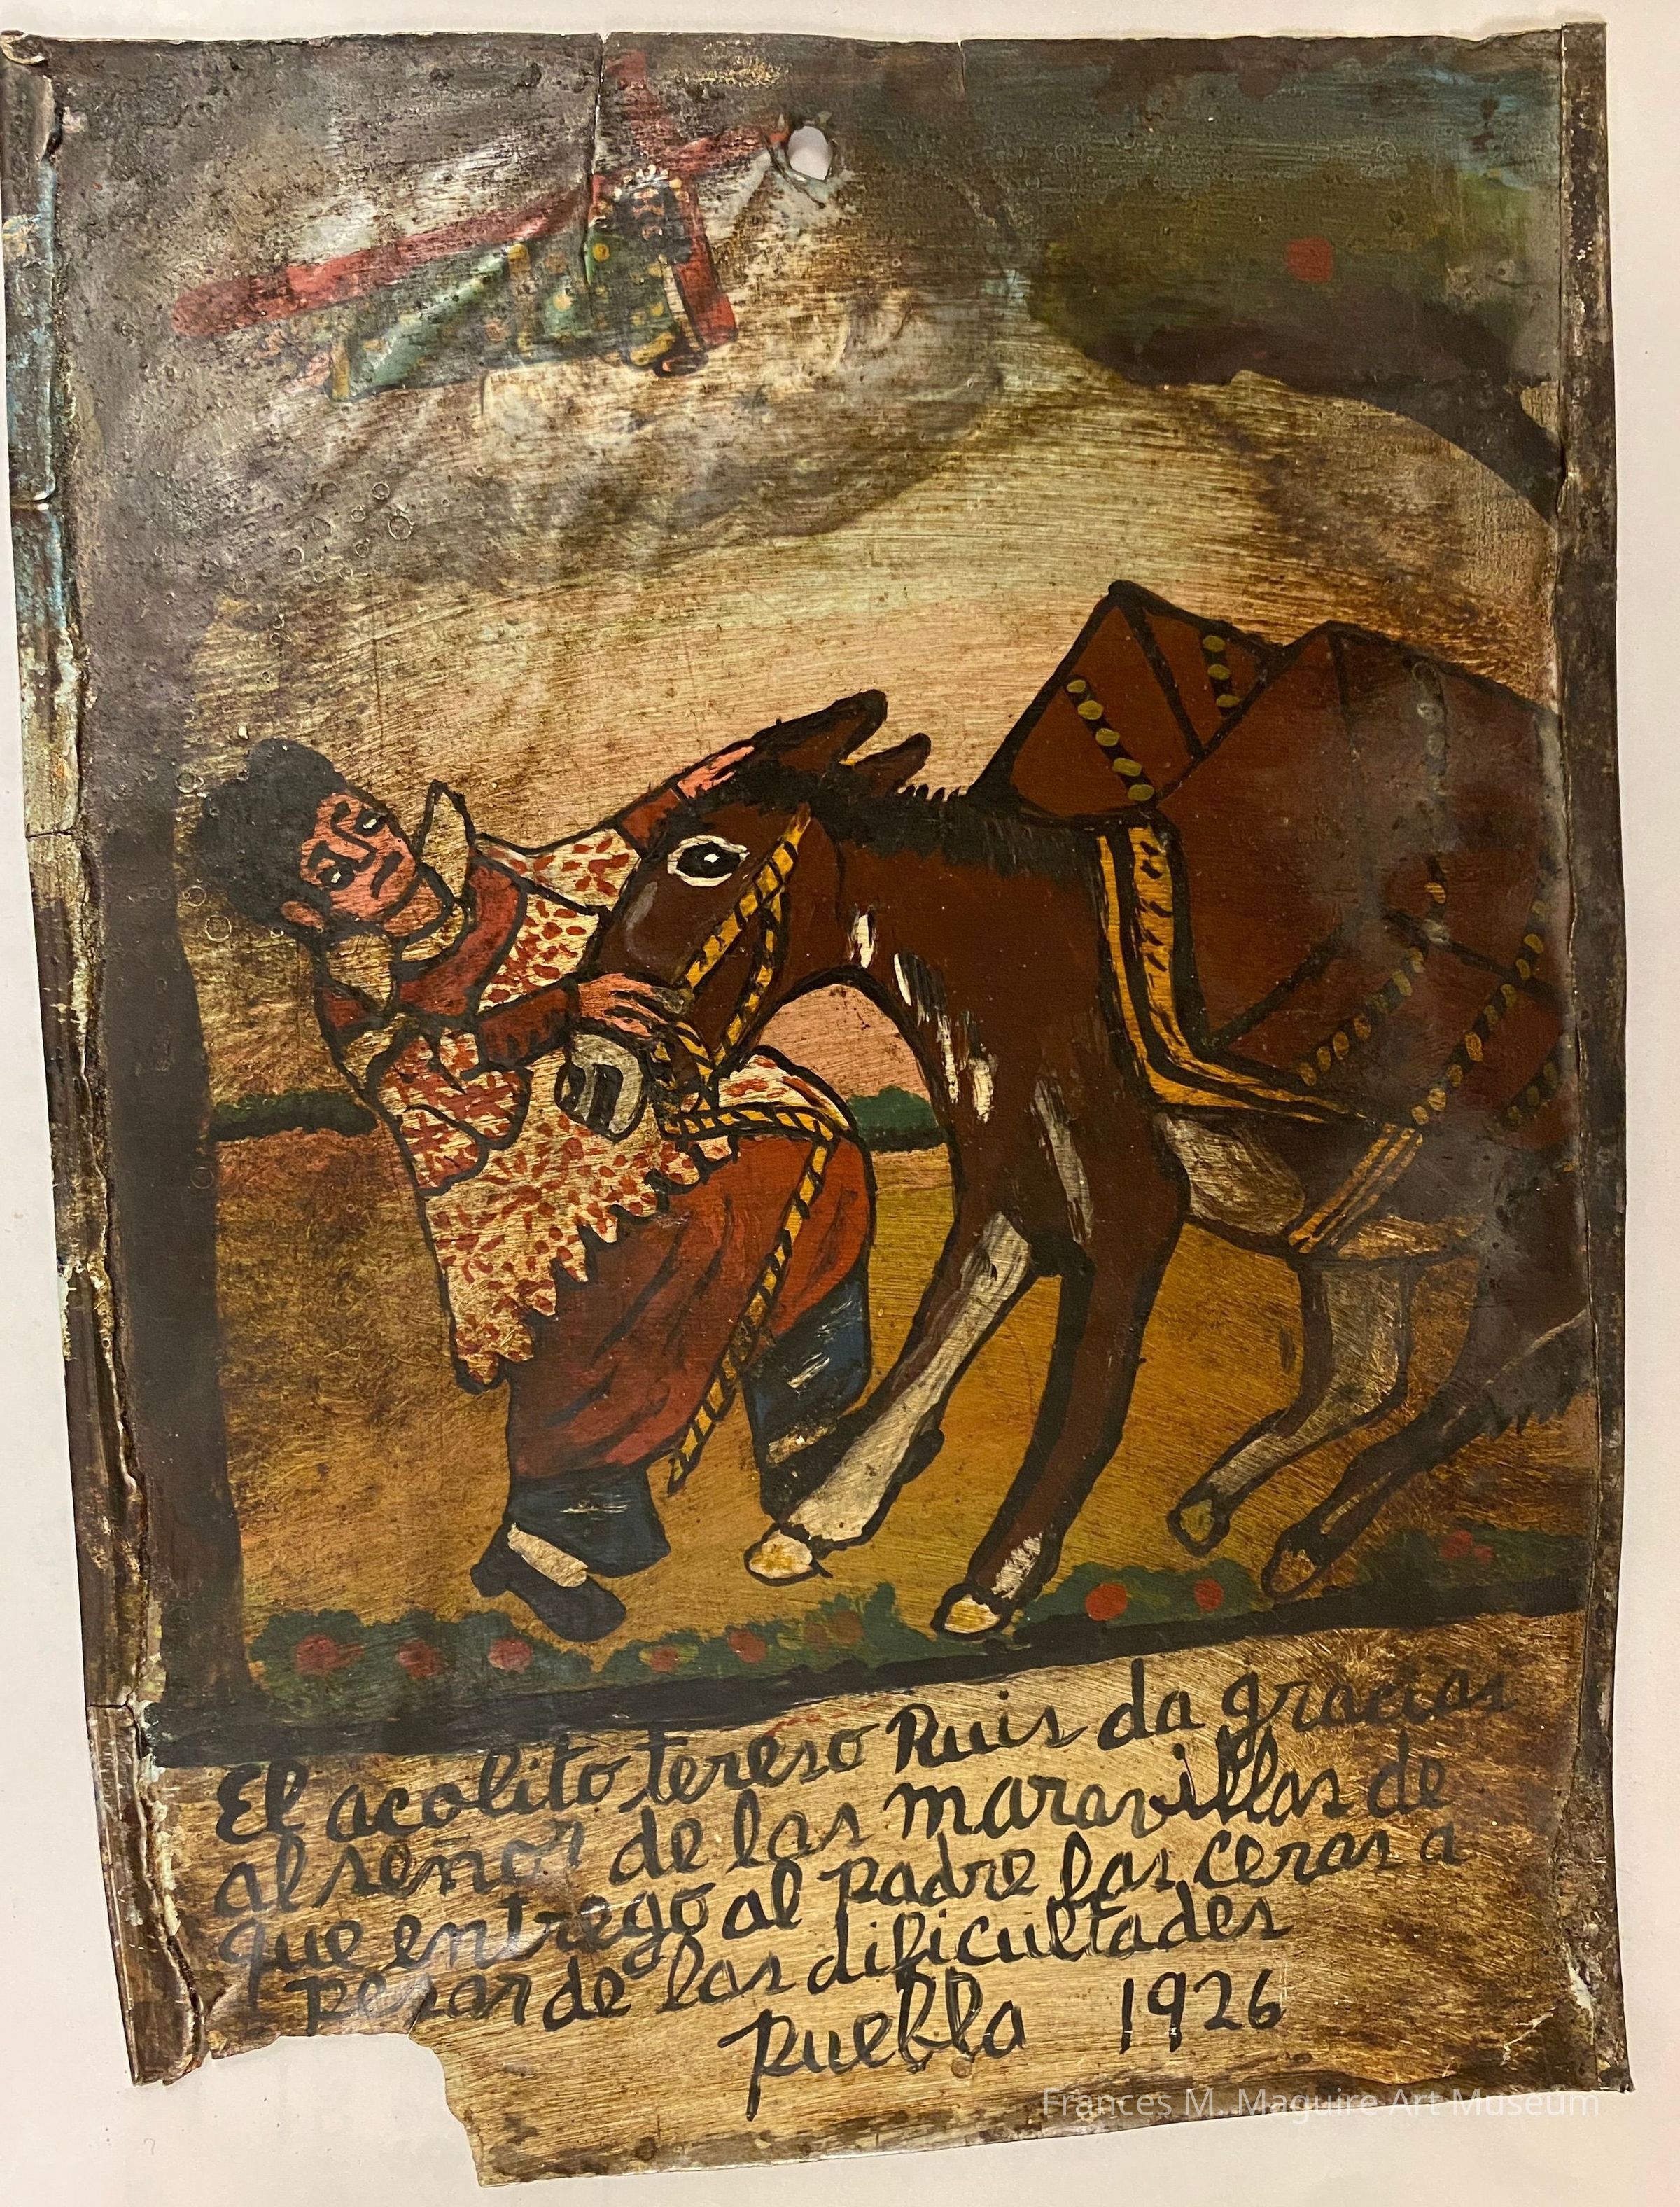 El acolito tereso Ruis da gracias
al señor de las maravillas de
que entrego al padre las ceras a
pesar de las dificultades
puebla 1926
Frances M. Maguire Art Museum